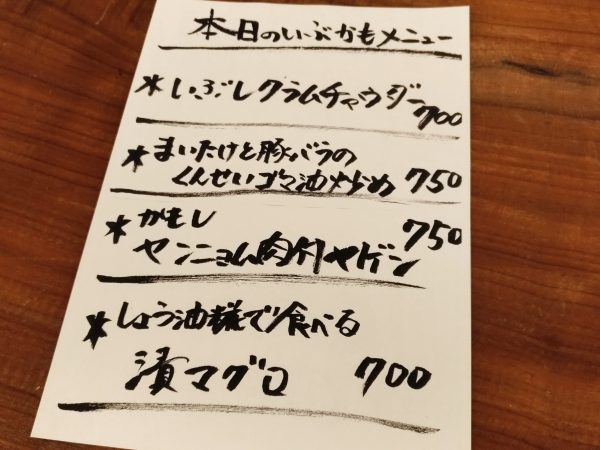 本日のいぶかもメニュー
* いぶしクラムチャウダー 700
* まいたけと豚バラの
くんせいゴマ油炒め 750
* かもし 750
ヤンニョム肉付ヤゲン
* しょう油糀で食べる
漬マグロ 700